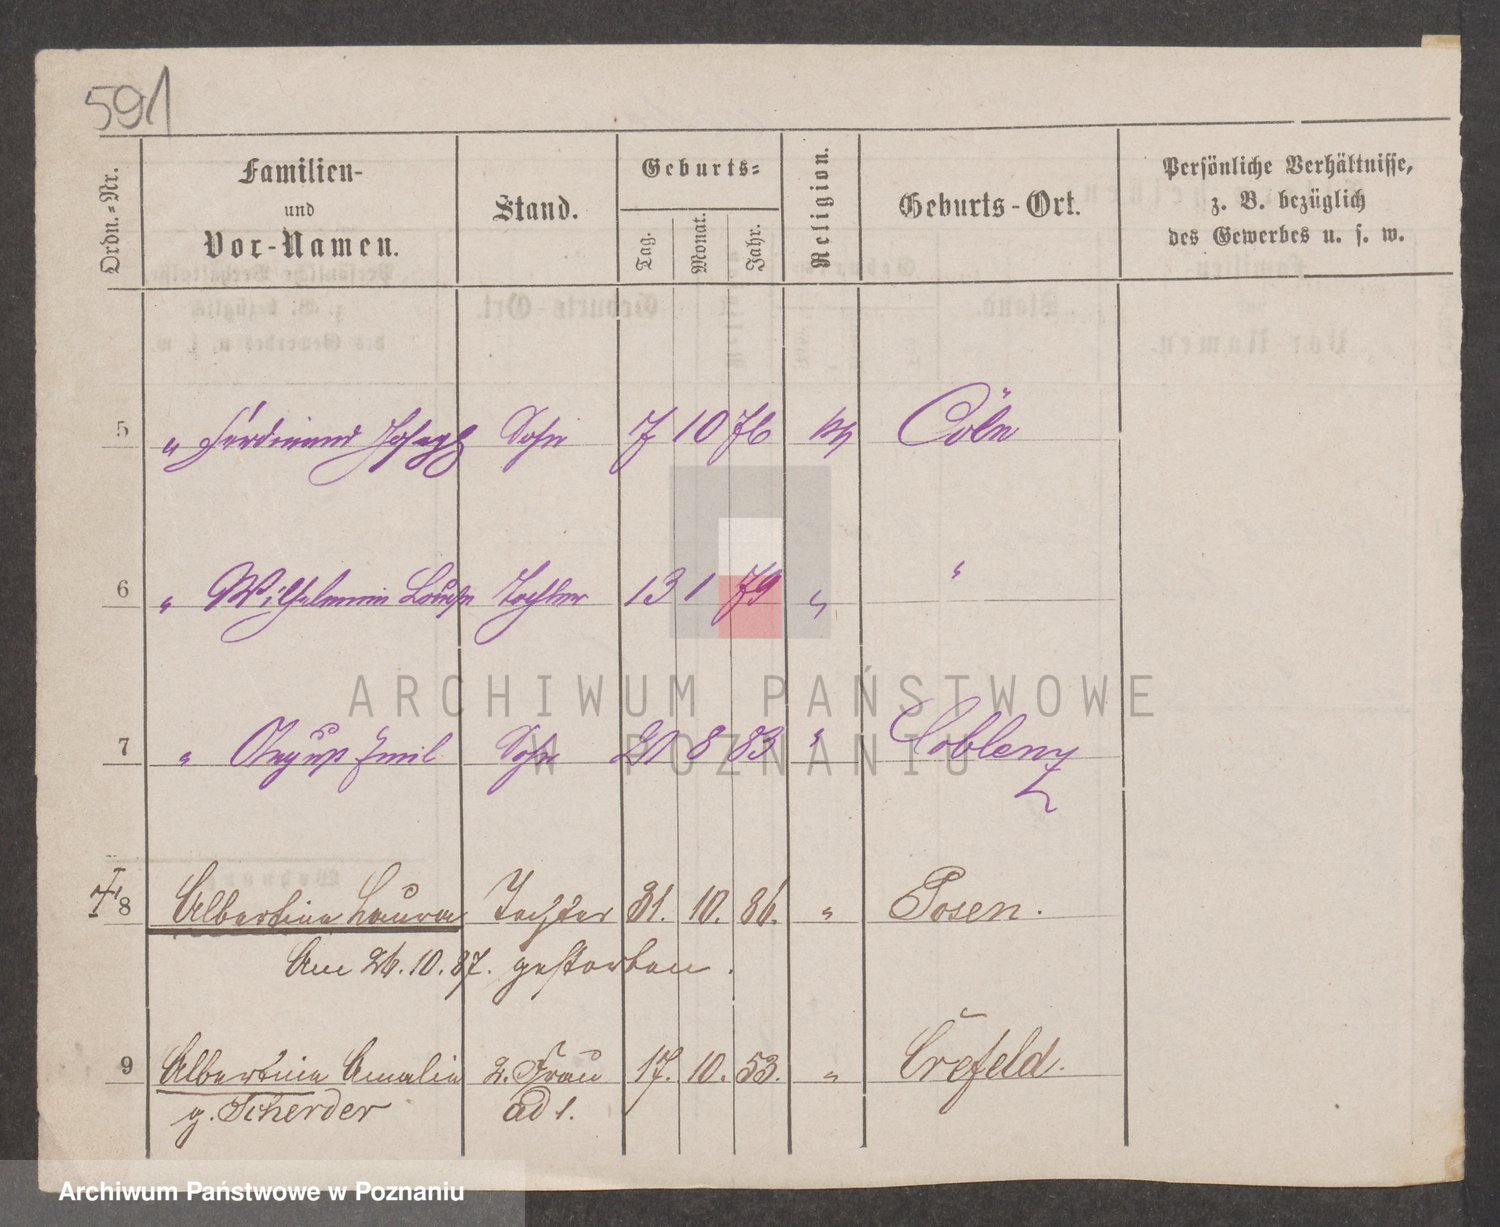 591
Ordn.-Nr.
Familien-
und
Vor-Namen.
Stand.
Geburts-
Tag.
Monat.
Jahr.
Religion.
Geburts-Ort.
Persönliche Verhältnisse,
z. B. bezüglich
des Gewerbes u. s. w.
5 " Ferdinand Joseph Sohn 7 10 76 Cöln
6 " Wilhelmine Louise Tochter 13 1 79 " "
ARCHIWUM PAŃSTWOWE
7 " August Emil Sohn 21 8 83 " Coblenz
W POZNANIU
8 Albertine Laura Tochter 31. 10. 86. " Posen.
Am 26.10.87. gestorben.
9 Albertine Amalie 2. Frau 17. 10. 53. " Crefeld.
g. Scherder ad 1.
Archiwum Państwowe w Poznaniu